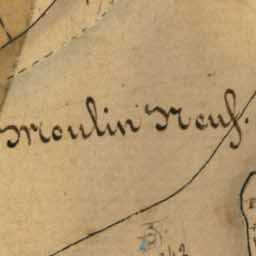 Moulin Neuf.